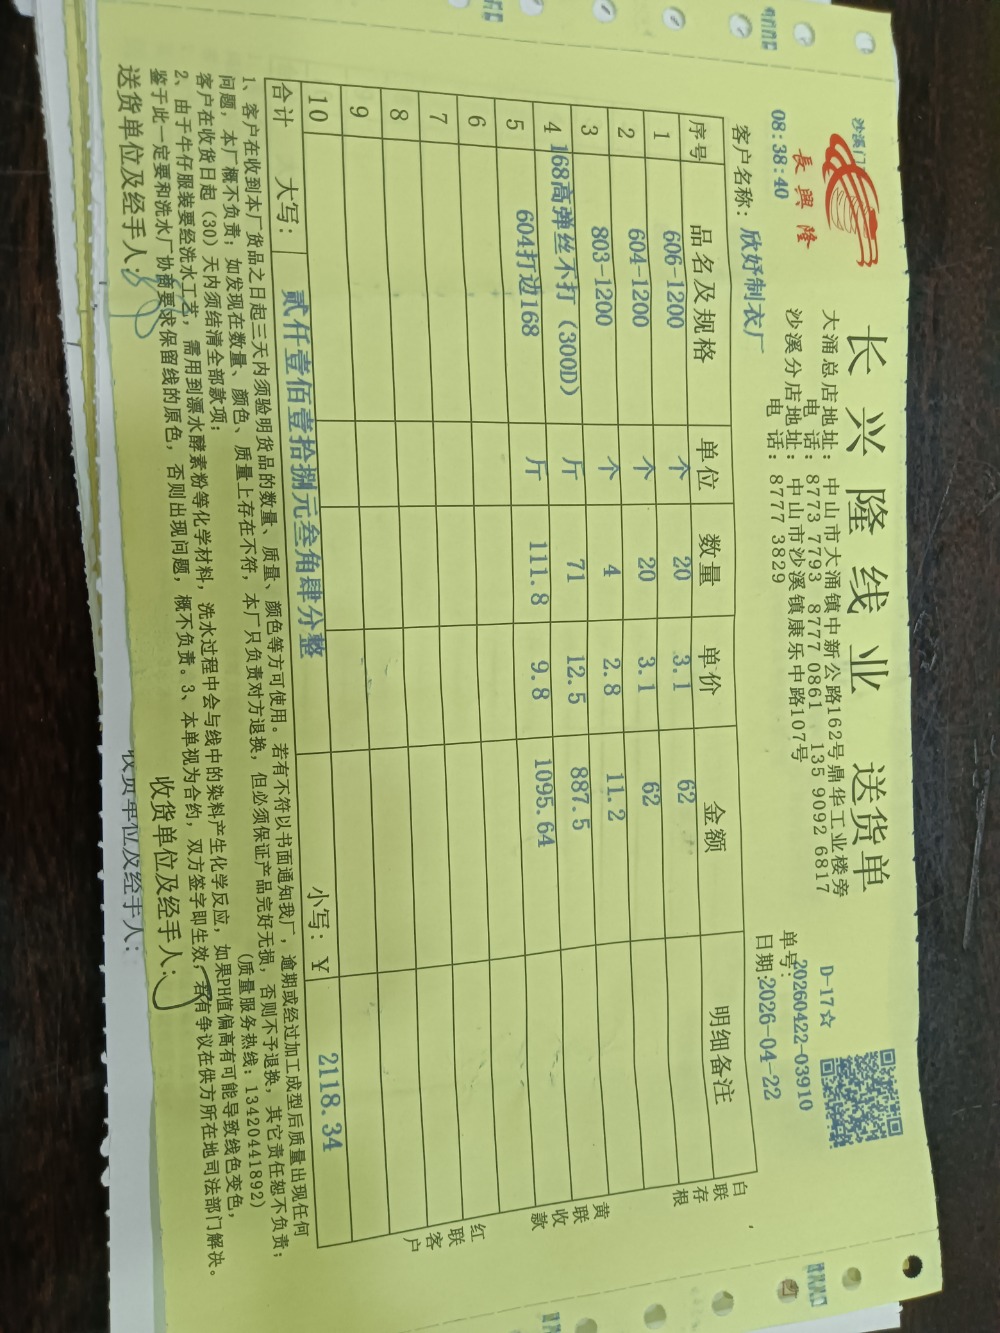 沙溪门
長興隆
长兴隆线业 送货单
D-17☆
大涌总店地址：中山市大涌镇中新公路162号鼎华工业楼旁
电 话：8773 7793 8777 0861 135 9092 6817
沙溪分店地址：中山市沙溪镇康乐中路107号
电 话：8777 3829
08:38:40
单号：20260422-03910
客户名称：欣妤制衣厂
日期：2026-04-22
序号 品名及规格 单位 数量 单价 金额 明细备注
1 606-1200 个 20 3.1 62
2 604-1200 个 20 3.1 62
3 803-1200 个 4 2.8 11.2
4 168高弹丝不打（300D） 斤 71 12.5 887.5
5 604打边168 斤 111.8 9.8 1095.64
6
7
8
9
10
合计 大写：贰仟壹佰壹拾捌元叁角肆分整 小写：￥ 2118.34
白联存根
黄联收款
红联客户
1、客户在收到本厂货品之日起三天内须验明货品的数量、质量、颜色等方可使用。若有不符以书面通知我厂，逾期或经过加工成型后质量出现任何
问题，本厂概不负责；如发现在数量、颜色、质量上存在不符，本厂只负责对方退换，但必须保证产品完好无损，否则不予退换，其它责任恕不负责；
客户在收货日起（30）天内须结清全部款项； （质量服务热线：13420441892）
2、由于牛仔服装要经洗水工艺，需用到漂水酵素粉等化学材料，洗水过程中会与线中的染料产生化学反应，如果PH值偏高有可能导致线色变色，
鉴于此一定要和洗水厂协商要求保留线的原色，否则出现问题，概不负责。3、本单视为合约，双方签字即生效，若有争议在供方所在地司法部门解决。
送货单位及经手人： 收货单位及经手人：
收货单位及经手人：